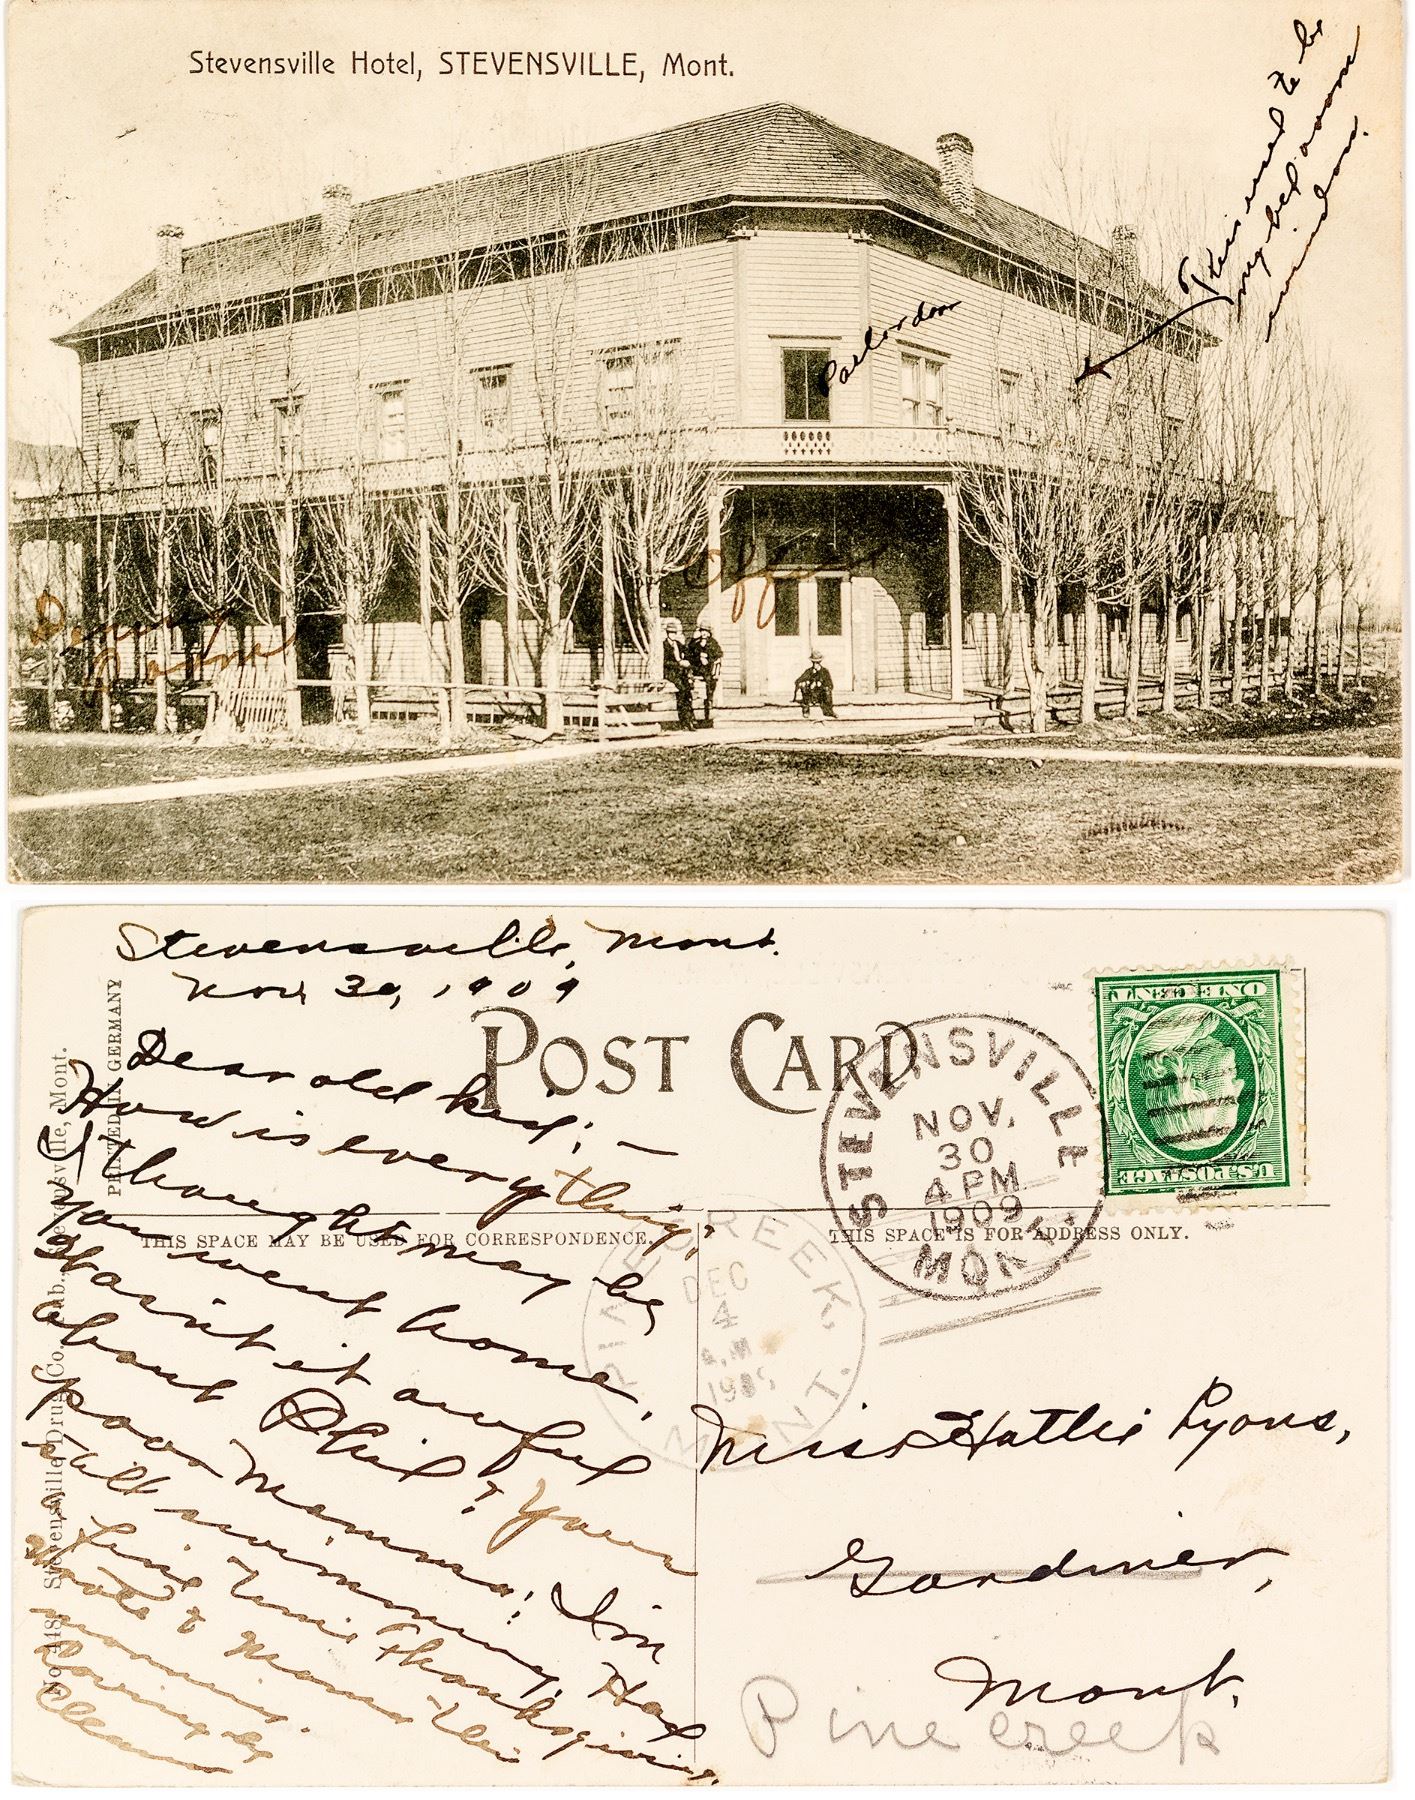 Stevensville Hotel, STEVENSVILLE, Mont.
This used to be
my bed room
window.
Parlor door
Office
Dining
Room
Stevensville, Mont.
Nov. 30, 1909
POST CARD
PRINTED IN GERMANY
No. 418. Stevensville Drug Co., Pub., Stevensville, Mont.
Dear old kid; —
How is everything;
I thought may be
you went home,
Wasn't it awful
about Phil? Your
poor Mamma; I'm
still swimming, Had
a fine time Thanksgiving,
Wrote to Mamma this
morning.
Lovingly
THIS SPACE MAY BE USED FOR CORRESPONDENCE.
THIS SPACE IS FOR ADDRESS ONLY.
STEVENSVILLE
NOV.
30
4 PM
1909
MONT.
PINE CREEK,
DEC
4
1909
MONT.
ONE CENT
U.S. POSTAGE
Miss Hattie Lyons,
Gardiner,
Mont.
Pine creek